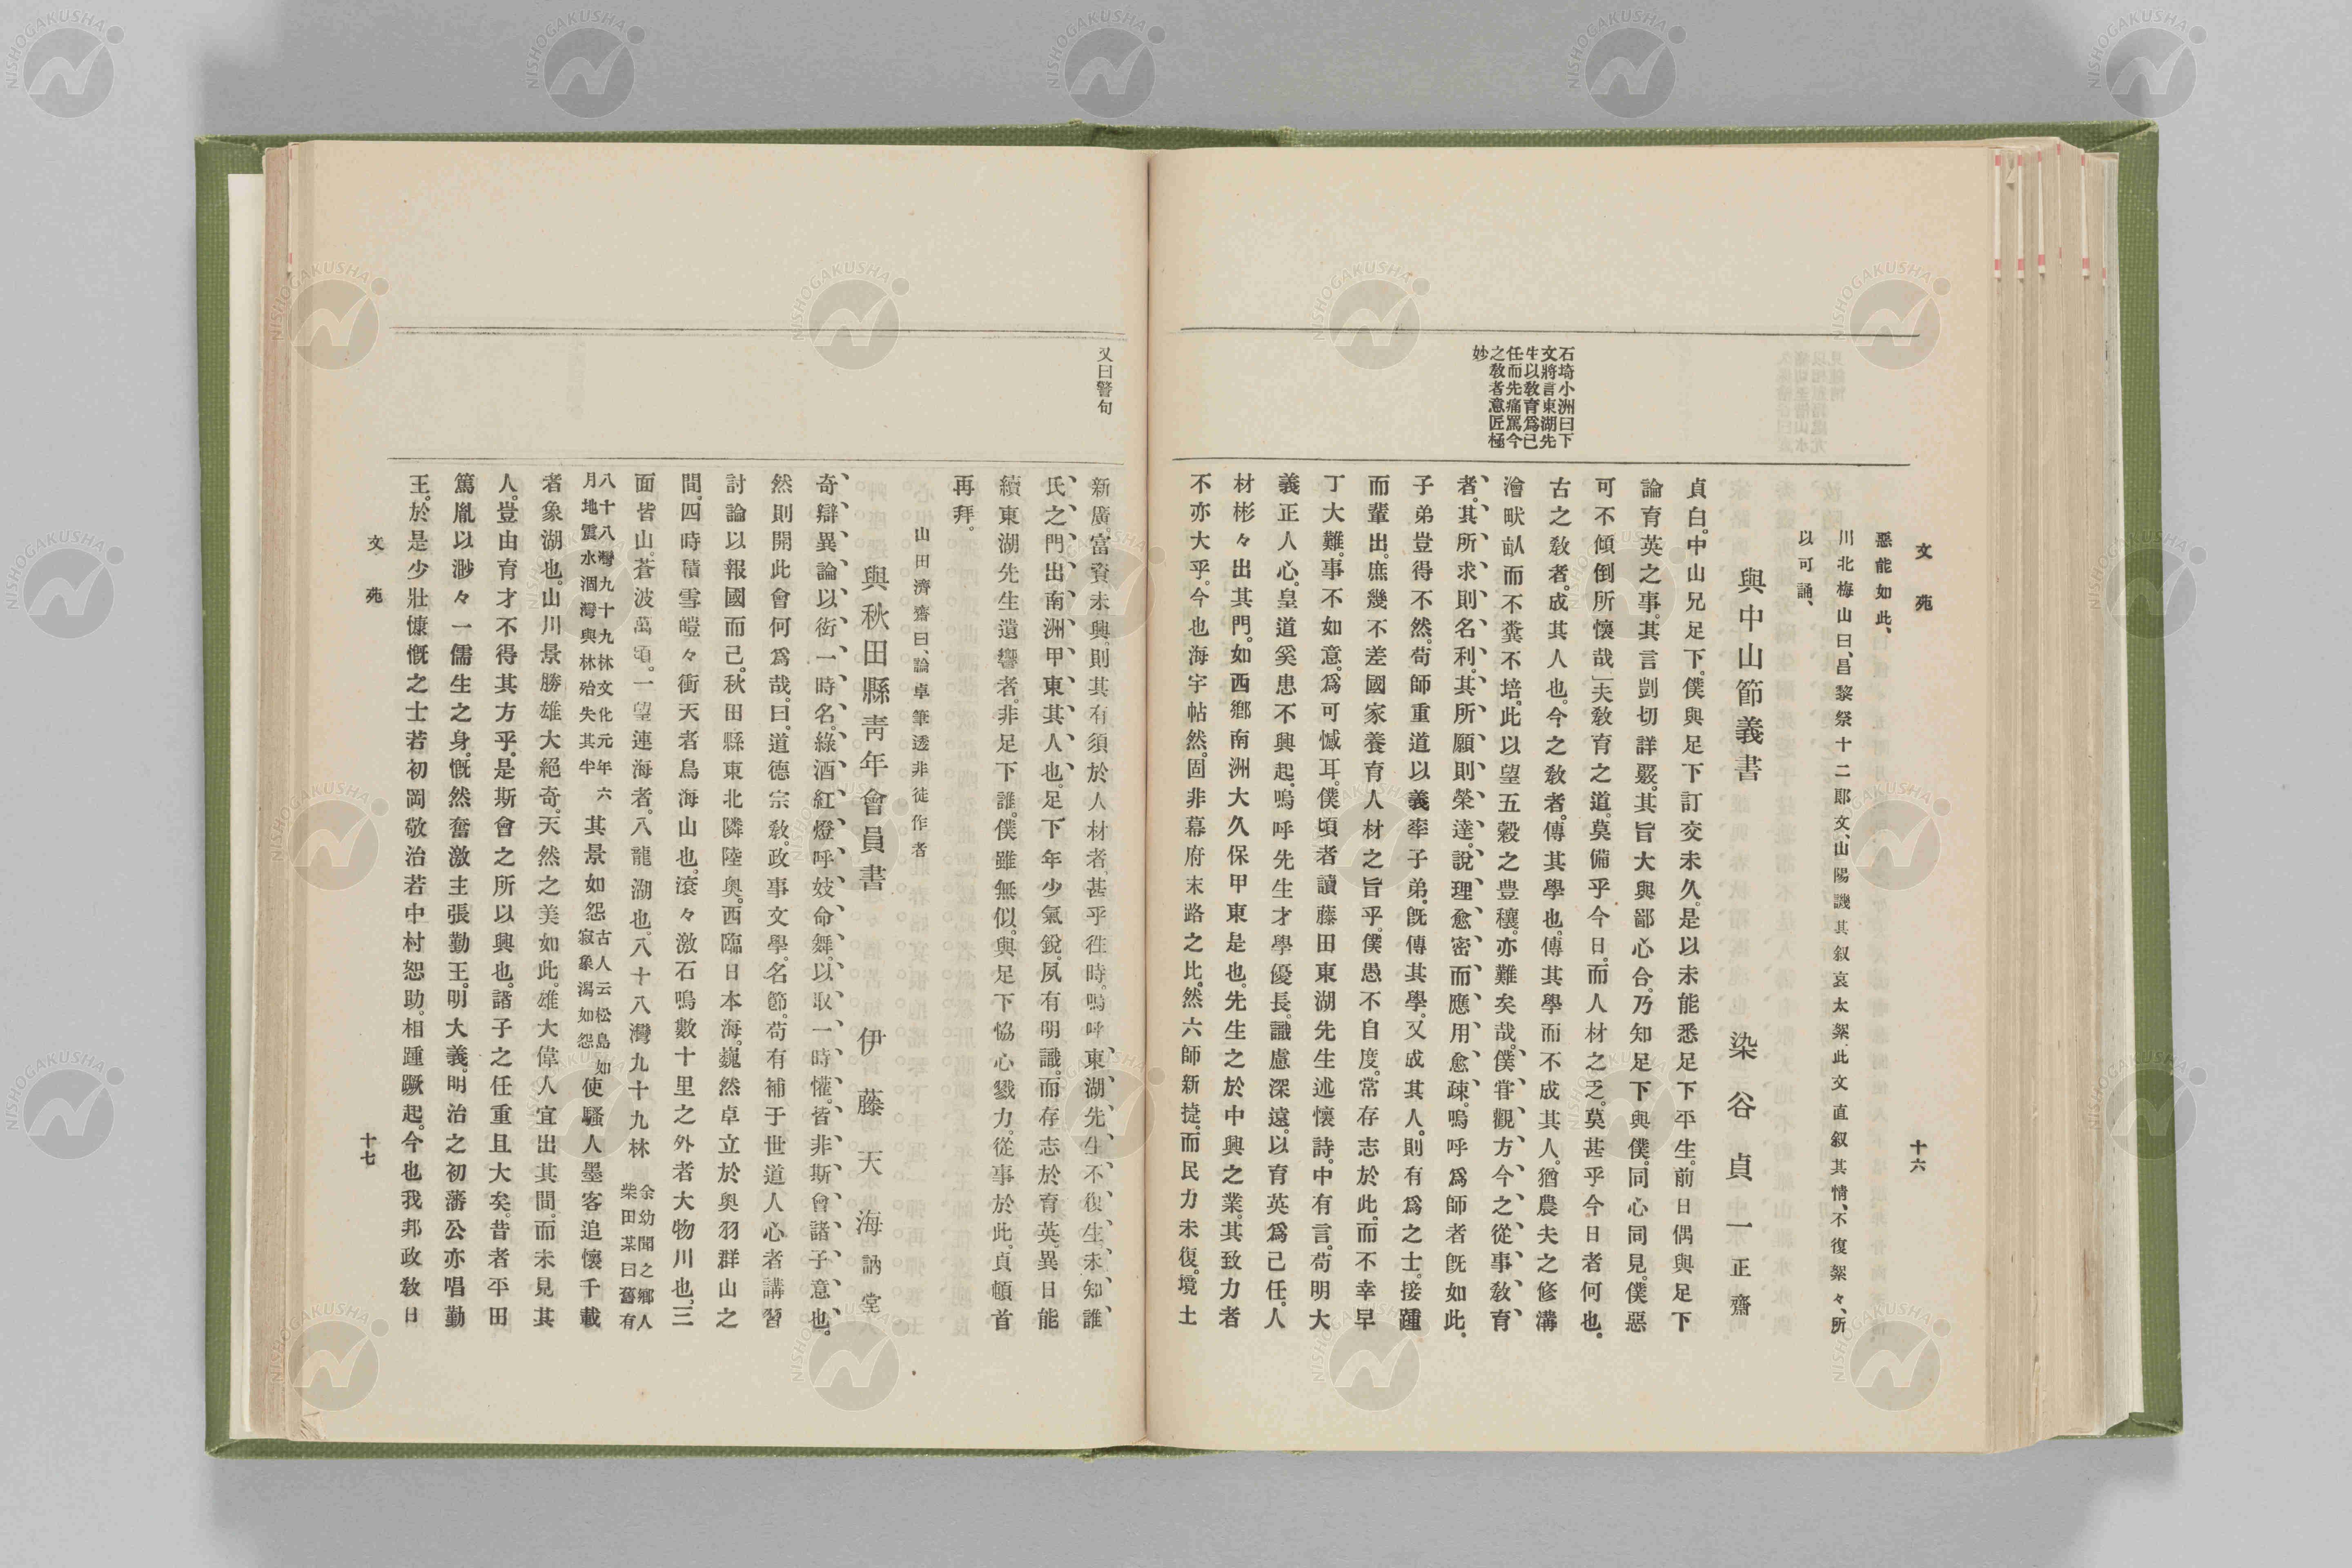 文苑
十六
惡能如此、
川北梅山曰、昌黎祭十二郞文、山陽譏其叙哀太絮、此文直叙其情、不復絮々、所
以可誦、
與中山節義書
染谷貞一正齋
石埼小洲曰下
文將言東湖先
生以敎育爲己
任而先痛罵今
之敎者意匠極
妙
貞白。中山兄足下。僕與足下訂交未久。是以未能悉足下平生。前日偶與足下
論育英之事。其言剴切詳嚴。其旨大與鄙心合。乃知足下與僕。同心同見。僕惡
可不傾倒所懷哉」夫敎育之道。莫備乎今日。而人材之乏。莫甚乎今日者何也。
古之敎者。成其人也。今之敎者。傳其學也。傳其學而不成其人。猶農夫之修溝
澮畎畝而不糞不培。此以望五穀之豊穰。亦難矣哉。僕甞觀方今之從事敎育
者。其所求則名利、其所願則榮達。說理愈密而應用愈疎。嗚呼爲師者旣如此。
子弟豈得不然。苟師重道以義率子弟。旣傳其學。又成其人。則有爲之士。接踵
而輩出。庶幾不差國家養育人材之旨乎。僕愚不自度。常存志於此。而不幸早
丁大難。事不如意。爲可憾耳。僕頃者讀藤田東湖先生述懷詩。中有言。苟明大
義正人心。皇道奚患不興起。嗚呼先生才學優長。識慮深遠。以育英爲己任。人
材彬々出其門。如西鄕南洲大久保甲東是也。先生之於中興之業。其致力者
不亦大乎。今也海宇帖然。固非幕府末路之比。然六師新捷。而民力未復。境土
又曰警句
新廣。富資未興。則其有須於人材者、甚乎徃時。嗚呼東湖先生不復生、未知誰
氏之門出南洲甲東其人也。足下年少氣銳。夙有明識。而存志於育英。異日能
續東湖先生遺響者。非足下誰。僕雖無似。與足下恊心戮力。從事於此。貞頓首
再拜。
山田濟齋曰、論卓筆透非徒作者
與秋田縣靑年會員書
伊藤天海訥堂
奇辯異論以衒一時名。綠酒紅燈呼妓命舞。以取一時懽。皆非斯會諸子意也。
然則開此會何爲哉。曰。道德宗敎。政事文學。名節。苟有補于世道人心者講習
討論以報國而已。秋田縣東北隣陸奧。西臨日本海。巍然卓立於奧羽群山之
間。四時積雪皚々衝天者鳥海山也。滾々激石鳴數十里之外者大物川也。三
面皆山。蒼波萬頃。一望連海者。八龍湖也。八十八灣九十九林余幼聞之鄕人柴田某曰舊有
八十八灣九十九林文化元年六月地震水涸灣與林殆失其半其景如怨古人云松島如寂象潟如怨使騷人墨客追懷千載
者象湖也。山川景勝雄大絕奇。天然之美如此。雄大偉人宜出其間。而未見其
人。豈由育才不得其方乎。是斯會之所以興也。諸子之任重且大矣。昔者平田
篤胤以渺々一儒生之身。慨然奮激主張勤王。明大義。明治之初藩公亦唱勤
王。於是少壯慷慨之士若初岡敬治若中村恕助。相踵蹶起。今也我邦政敎日
文苑
十七